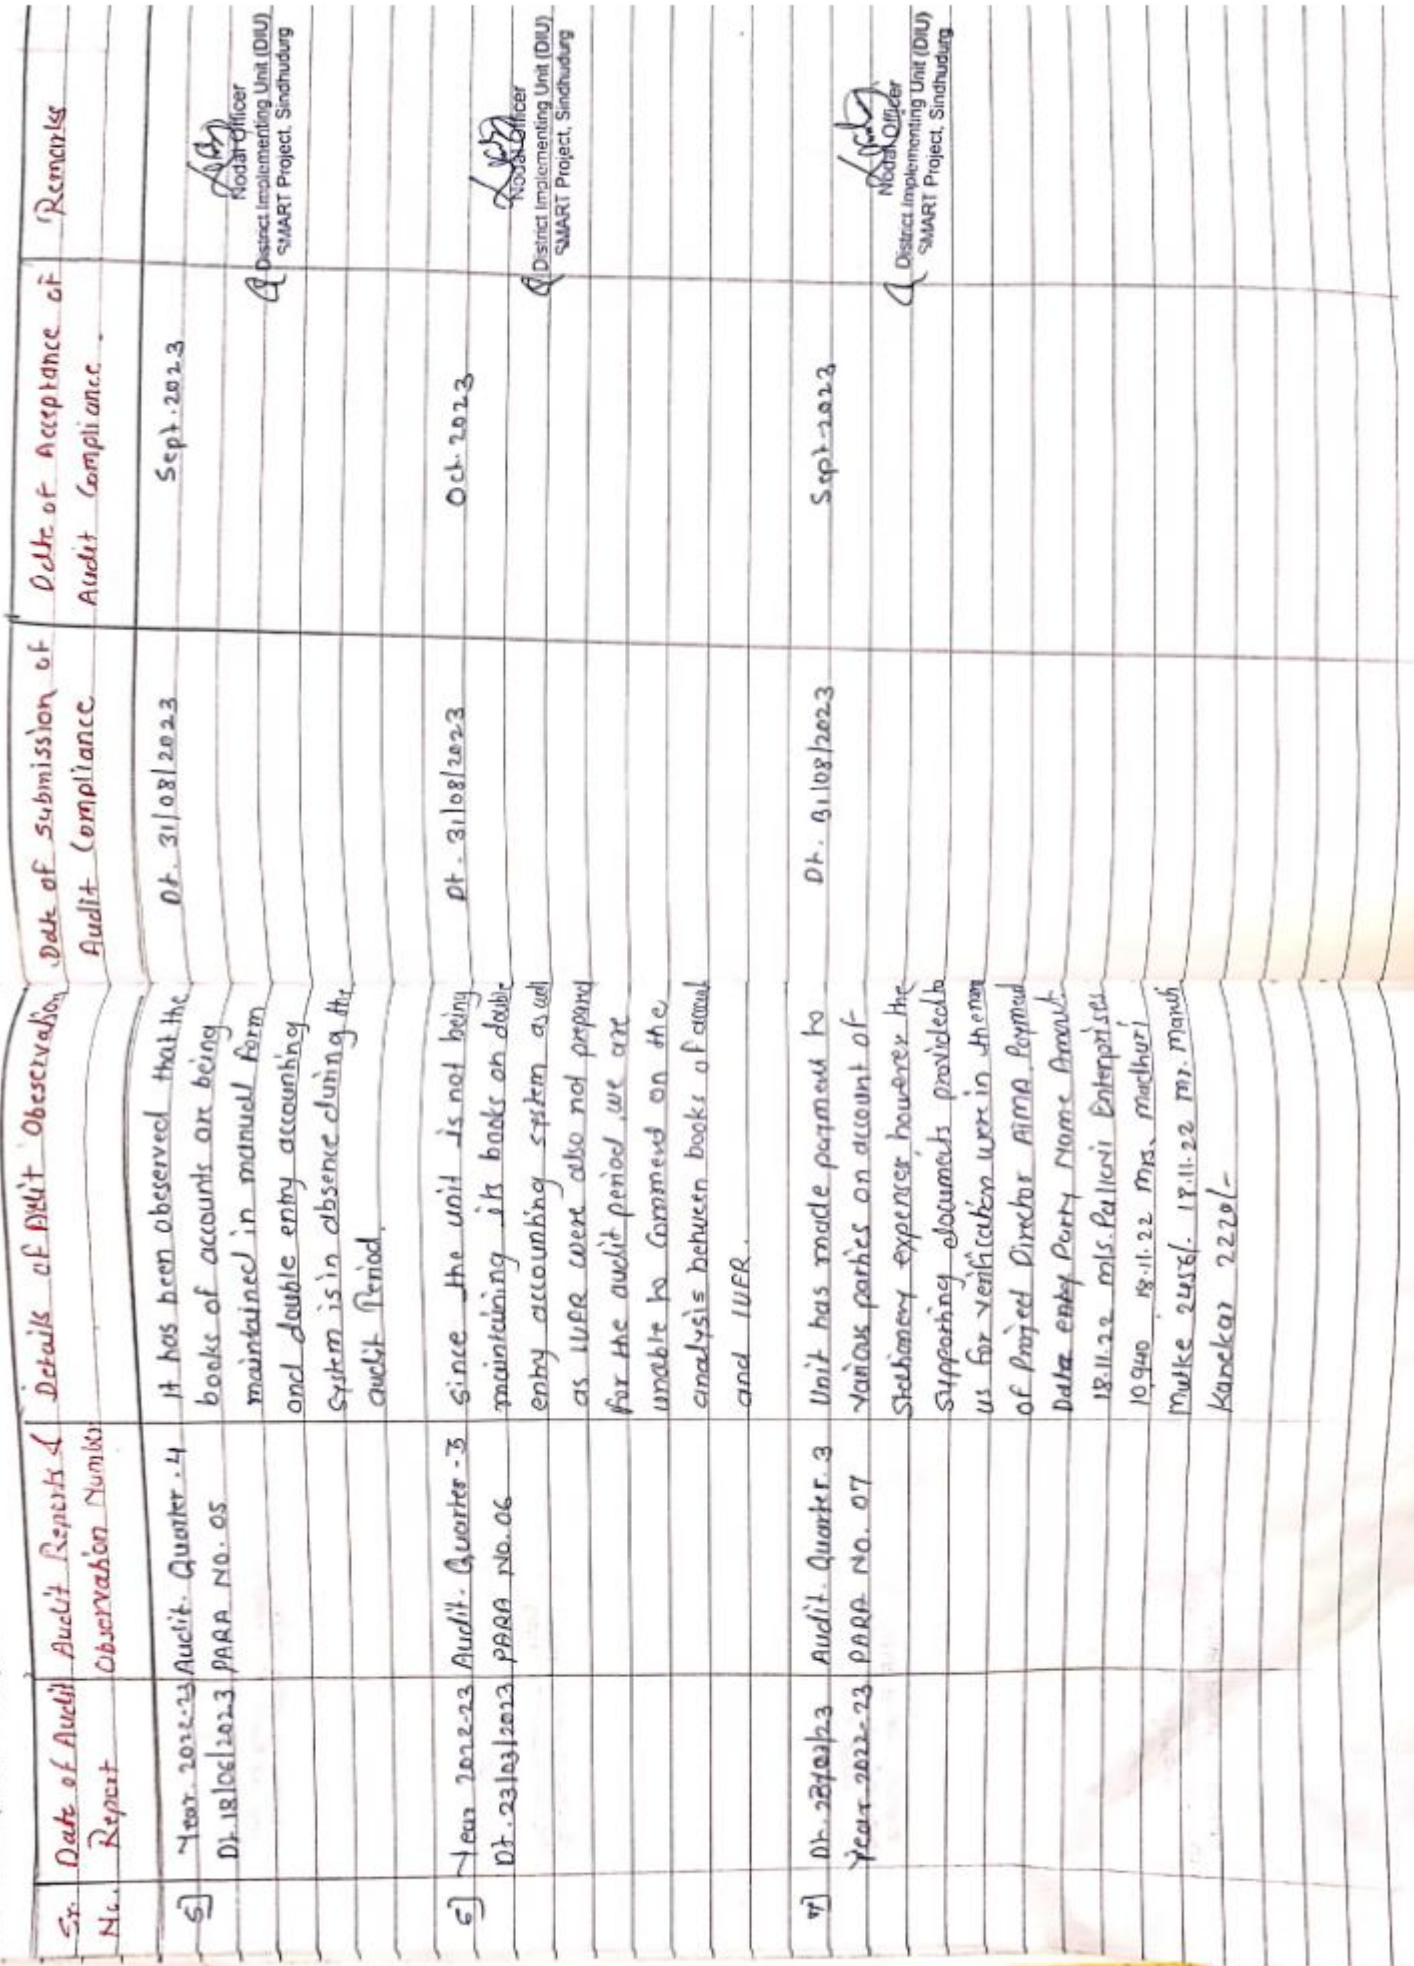 Sr. No.
Date of Audit Report
Audit Reports & Observation Number
Details of Audit Obeservation
Date of Submission of Audit Compliance
Date of Acceptance of Audit Compliance.
Remarks
5]
Year. 2022-23
Dt. 18/06/2023
Audit. Quarter. 4
PARA No. 05
It has been obeserved that the
books of accounts are being
maintained in manual form
and double entry accounting
system is in absence during the
audit Period.
Dt. 31/08/2023
Sept. 2023
Nodal Officer
District Implementing Unit (DIU)
SMART Project, Sindhudurg
6]
Year 2022-23
Dt. 23/03/2023
Audit. Quarter - 3
PARA No. 06
Since the unit is not being
maintaining its books on double
entry accounting system as well
as IUFR were also not prepared
for the audit period, we are
unable to Commend on the
analysis between books of account
and IUFR.
Dt. 31/08/2023
Oct. 2023
Nodal Officer
District Implementing Unit (DIU)
SMART Project, Sindhudurg
7]
Dt. 23/03/23
Year 2022-23
Audit. Quarter. 3
PARA No. 07
Unit has made payment to
various parties on account of
Stationery expenses however the
supporting documents provided to
us for verification were in the name
of Project Director AIMA. Payment
Date entry Party Name Amount
18.11.22 M/s. Enterprises
10,940 18.11.22 Mrs. Madhuri
Mutke 2456/- 18.11.22 Mr. Manoh
Kanekar 2220/-
Dt. 31/08/2023
Sept-2023
Nodal Officer
District Implementing Unit (DIU)
SMART Project, Sindhudurg